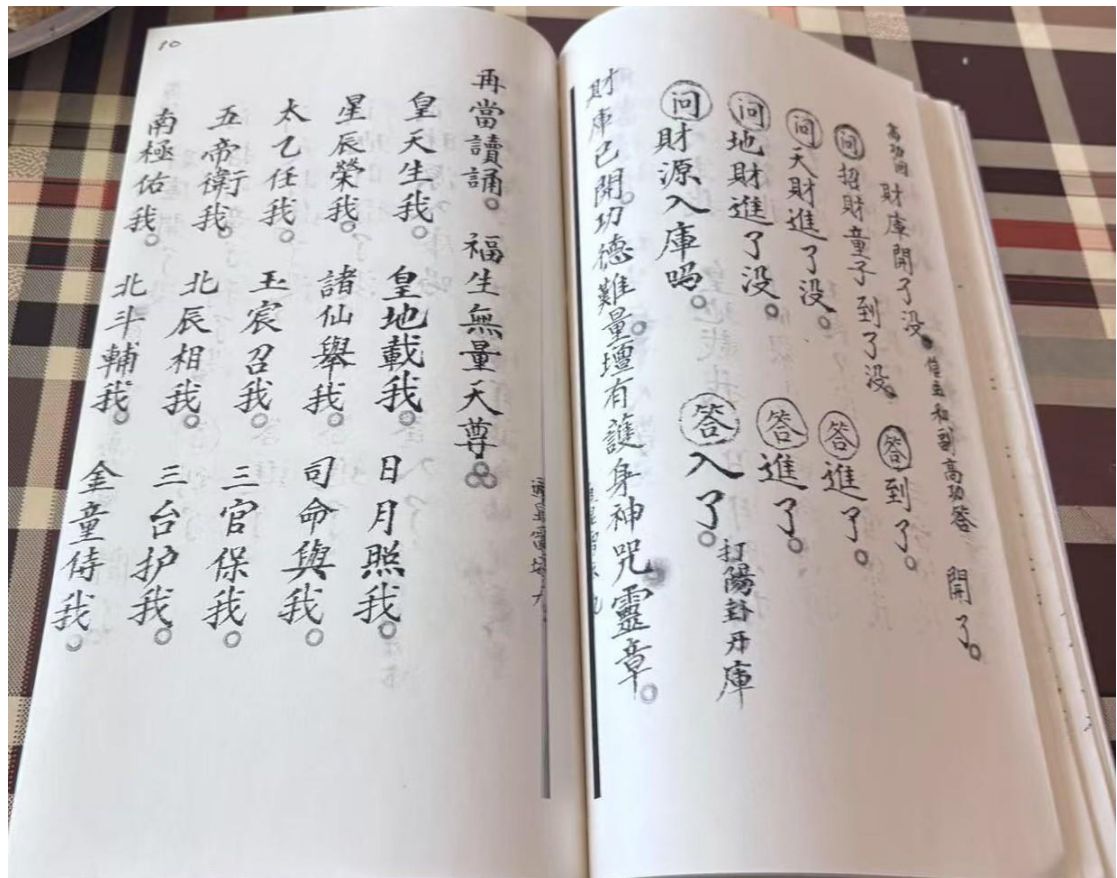 高功问 財庫開了没。 信主和到高功答 開了。
问招財童子到了没。 答到了。
问天財進了没。 答進了。
问地財進了没。 答進了。
问財源入庫吗。 答入了。 打陽卦开庫
財庫已開功德難量。壇有護身神咒靈章。
再當讀誦。 福生無量天尊。
皇天生我。 皇地載我。 日月照我。
星辰榮我。 諸仙舉我。 司命與我。
太乙任我。 玉宸召我。 三官保我。
五帝衛我。 北辰相我。 三台护我。
南極佑我。 北斗輔我。 金童侍我。
10